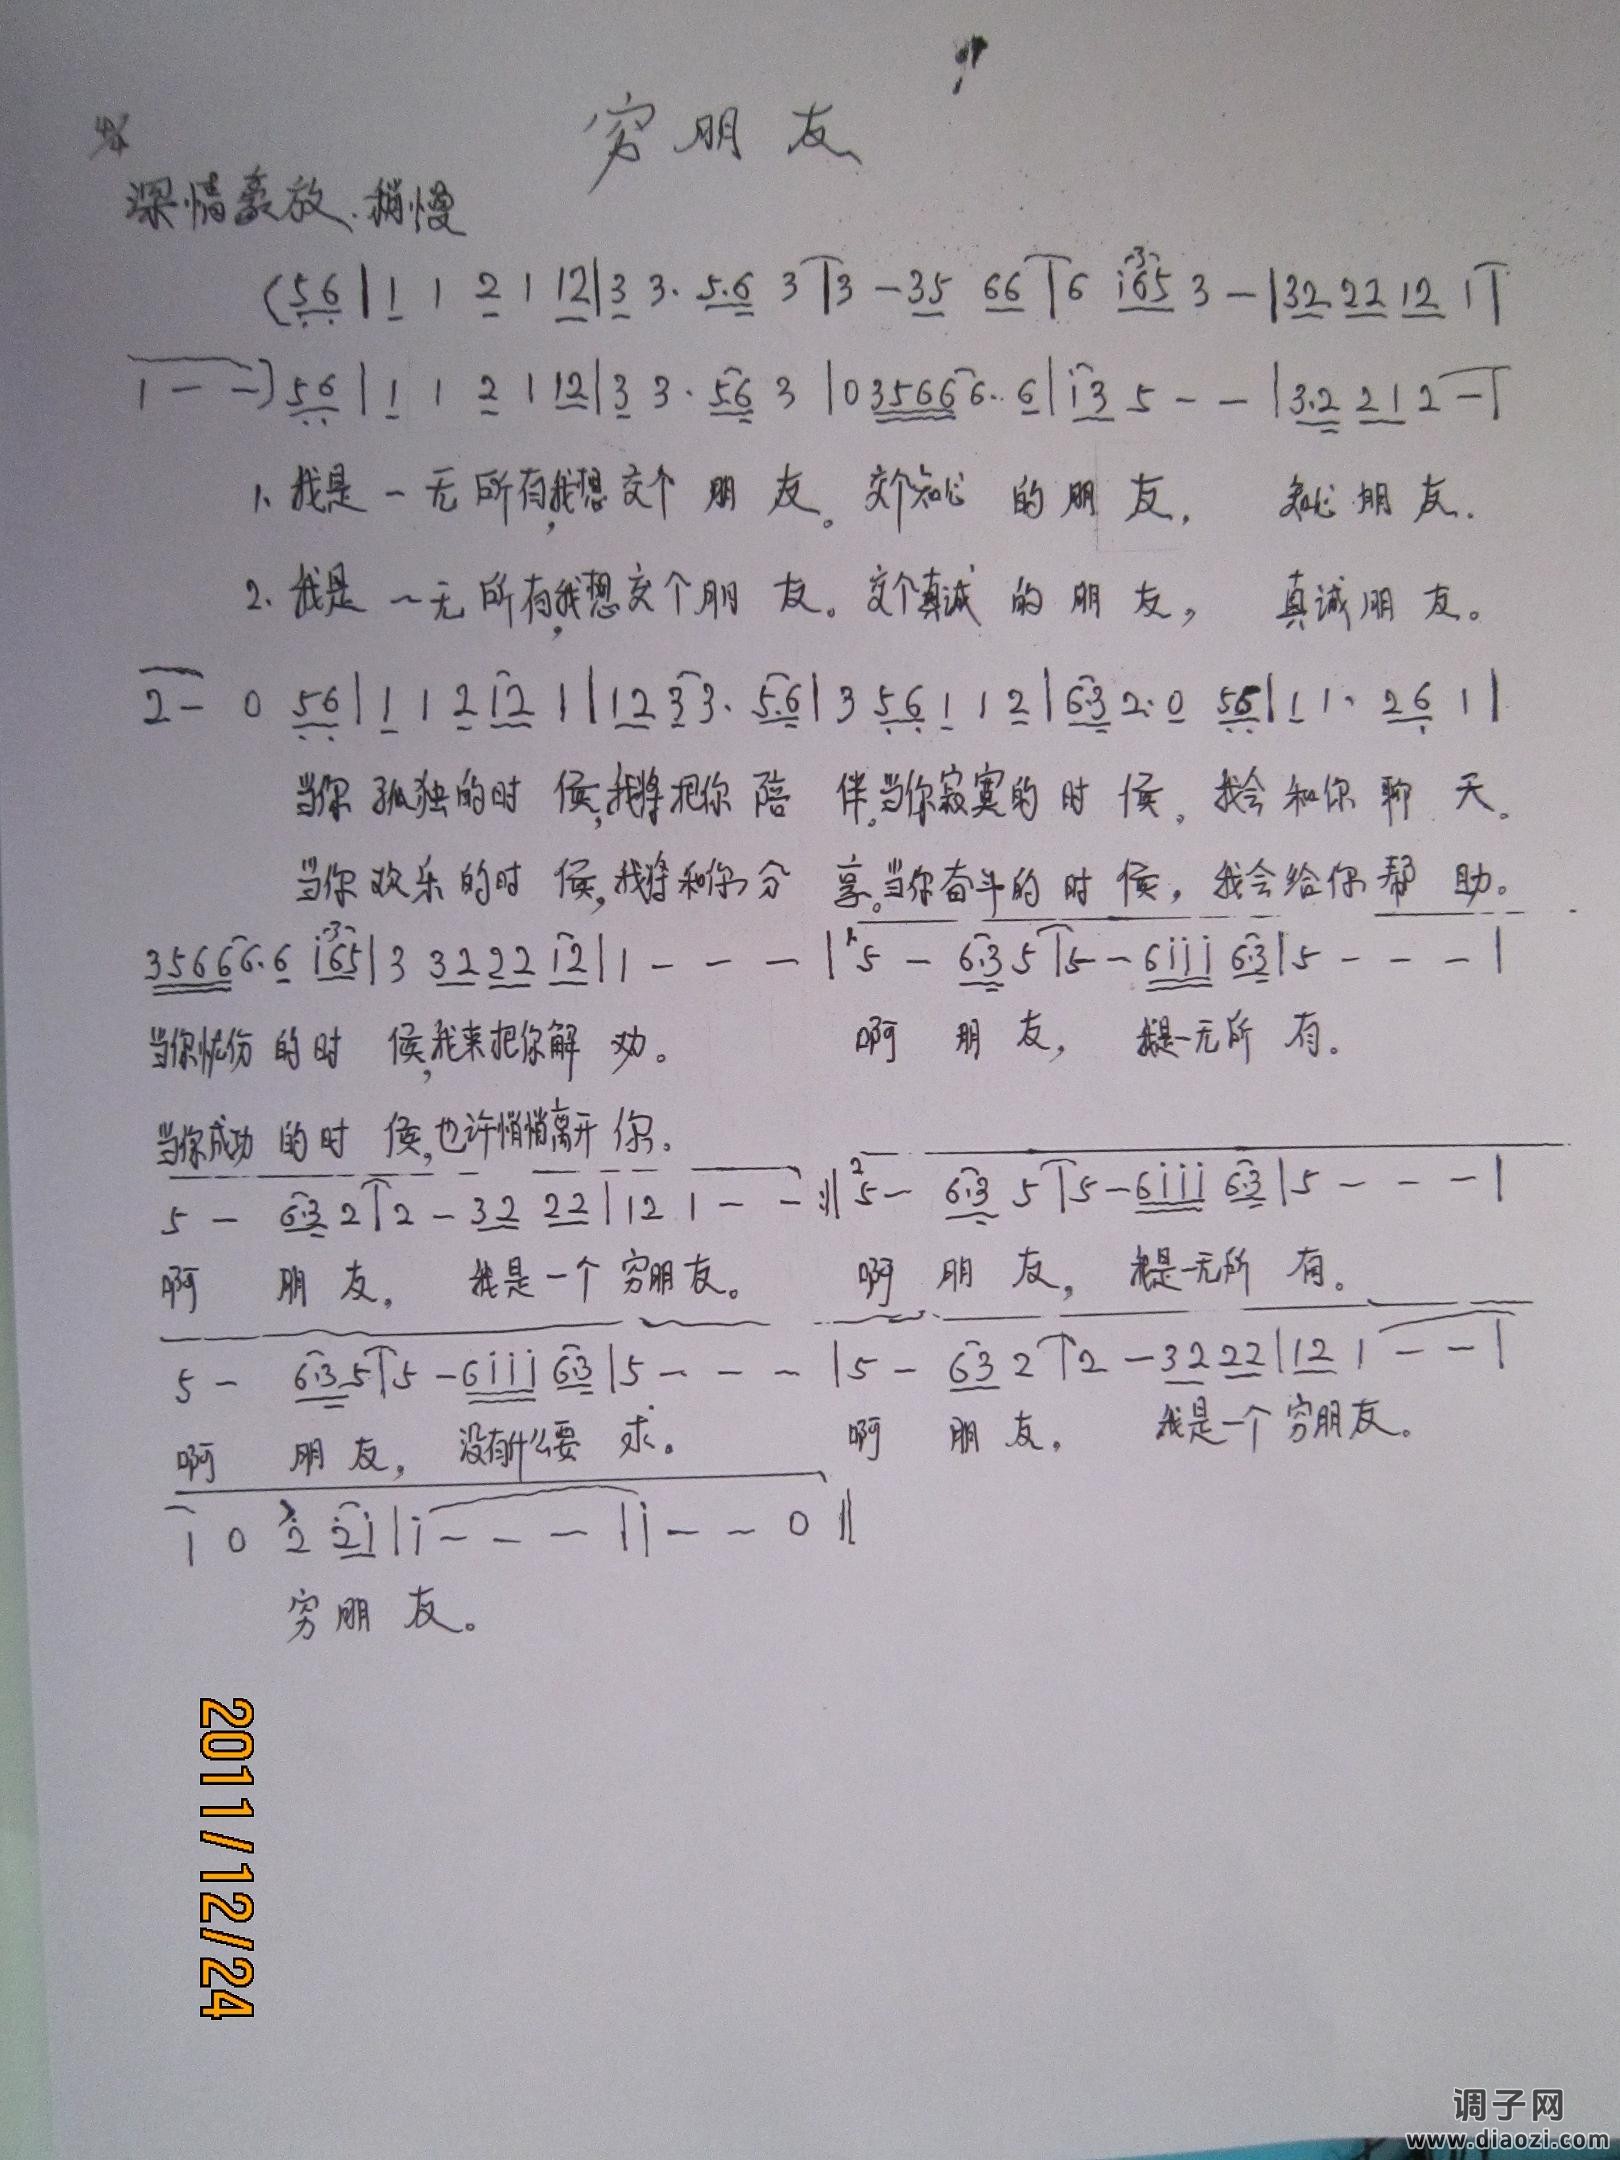 穷朋友
深情豪放、稍慢
(56|1 1 2 1 12|3 3. 5.6 3|3 - 35 66|6 i65 3 -|32 22 12 1|
1 - -)56|1 1 2 1 12|3 3. 56 3|0 35666.. 6|i3 5 - -|3.2 21 2 -|
1、我是一无所有,我想交个朋友。交个知心的朋友, 知心朋友.
2、我是一无所有,我想交个朋友。交个真诚的朋友, 真诚朋友。
2 - 0 56|1 1 2 12 1|12 3 3. 5.6|3 56 1 1 2|6.3 2. 0 56|1 1. 26 1|
当你孤独的时候,我将把你陪伴。当你寂寞的时候,我会和你聊天。
当你欢乐的时候,我将和你分享。当你奋斗的时候,我会给你帮助。
35666. 6 i65|3 32 22 12|1 - - -|1.5 - 6.3 5|5 - 6iii 6.3|5 - - -|
当你忧伤的时候,我来把你解劝。 啊朋友, 我是一无所有。
当你成功的时候,也许悄悄离开你。
5 - 6.3 2|2 - 32 22|12 1 - -:‖2 5 - 6.3 5|5 - 6iii 6.3|5 - - -|
啊 朋友, 我是一个穷朋友。 啊 朋友, 我是一无所有。
5 - 6.3 5|5 - 6iii 6.3|5 - - -|5 - 63 2|2 - 32 22|12 1 - -|
啊 朋友, 没有什么要求。 啊 朋友, 我是一个穷朋友。
1 0 2 2i|i - - -|i - - 0‖
穷朋友。
2011/12/24
调子网
www.diaozi.com